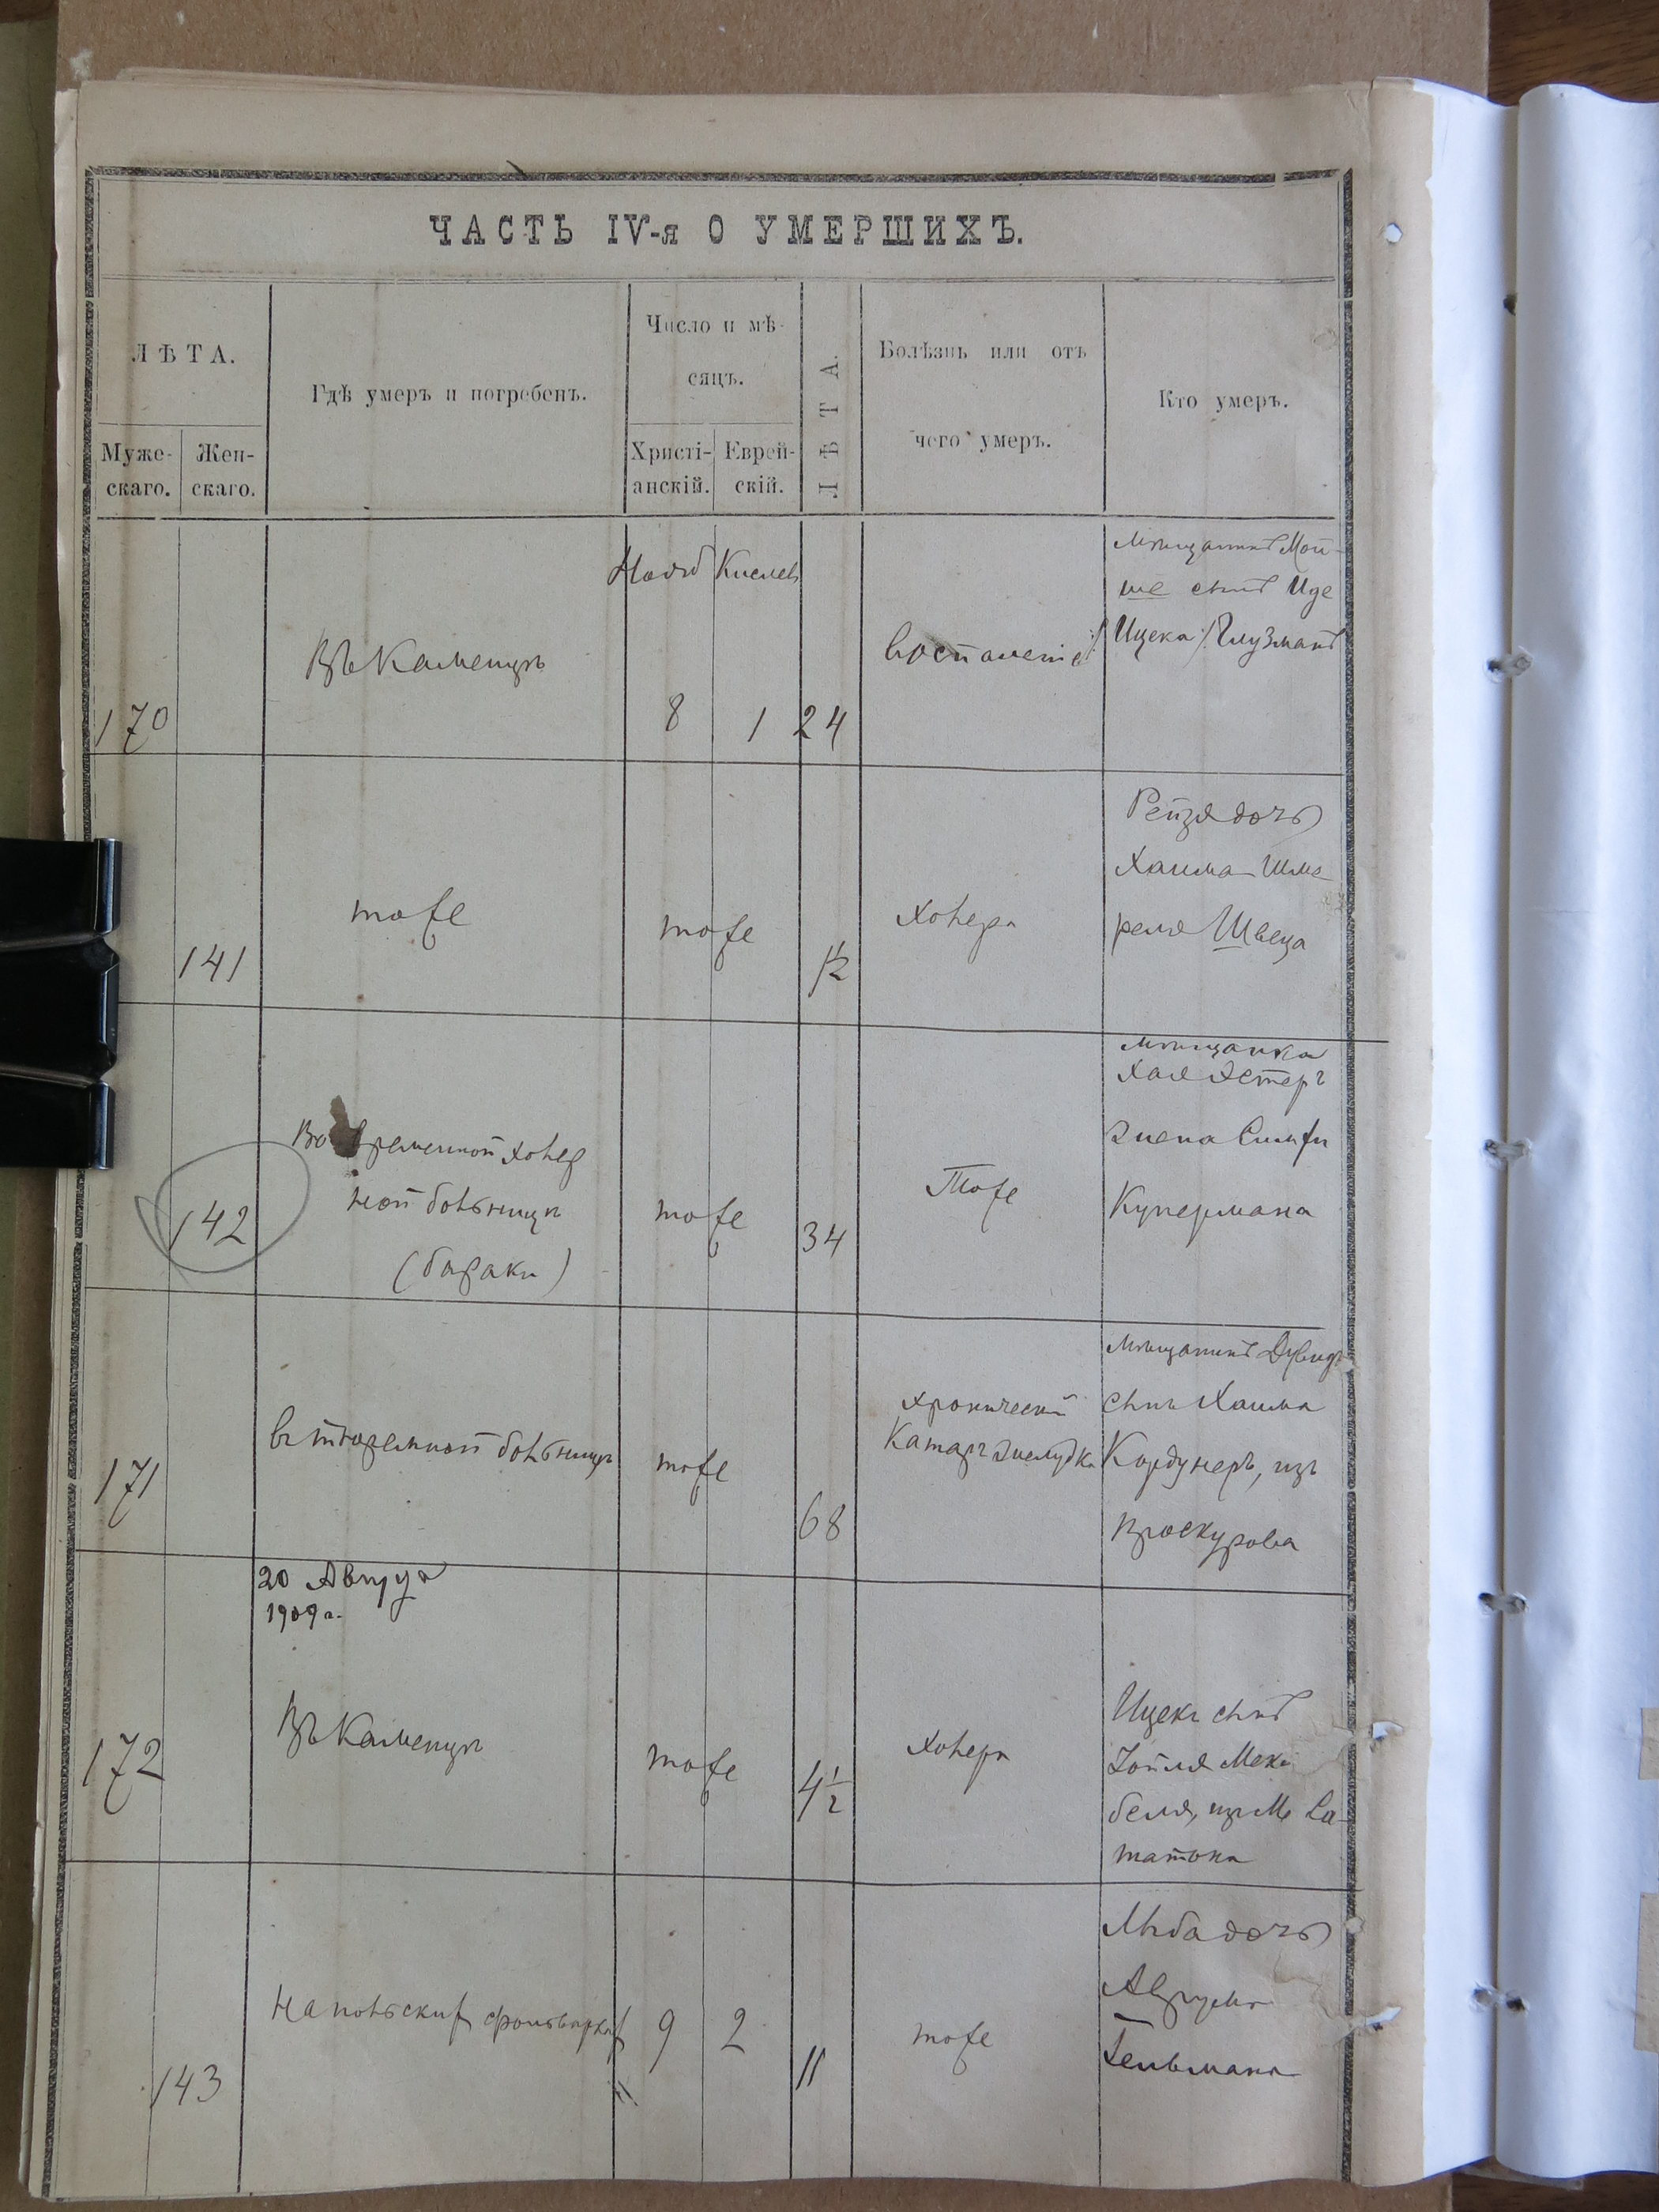 ЧАСТЬ IV-я О УМЕРШИХЪ.
ЛѢТА.
Муже-
скаго.
Жен-
скаго.
Гдѣ умеръ и погребенъ.
Число и мѣ-
сяцъ.
Христі-
анскій.
Еврей-
скій.
ЛѢТА.
Болѣзнь или отъ
чего умеръ.
Кто умеръ.
170
Въ Каменцѣ
Нояб
8
Кислев
1
24
Воспаленіе
мѣщанинъ Мой-
ше сынъ Иде
Ицека Глузманъ
141
тоже
тоже
1/2
Холера
Рейзя дочь
Хаима Шме
реля Швеца
142
Во временной холер
ной больницѣ
(бараки)
тоже
34
Тоже
мѣщанка
Хая Эстеръ
жена Симхи
Купермана
171
въ тюремной больницѣ
тоже
68
Хроническій
Катаръ желудка
мѣщанинъ Дувидъ
сынъ Хаима
Кордунеръ, изъ
Проскурова
20 Августа
1909 г.
172
Въ Каменцѣ
тоже
4 1/2
Холера
Ицекъ сынъ
Зойля Меки
беля, изъ М. Са
танова
143
На польскихъ фольваркахъ
9
2
11
тоже
Либа дочь
Аврума
Гельмана